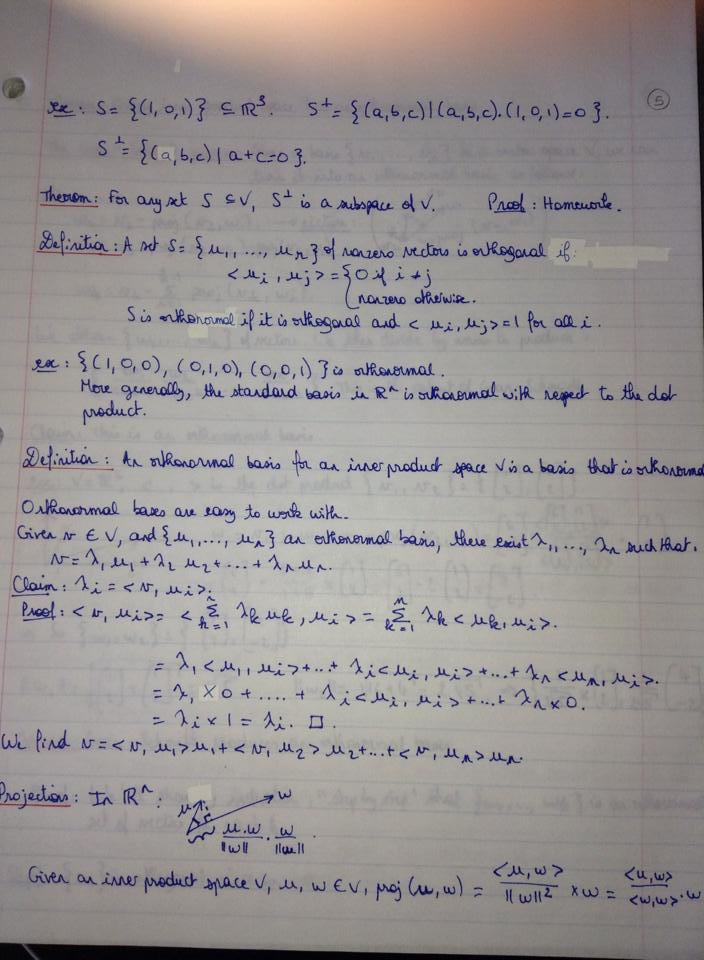 5
ex: S = {(1, 0, 1)} ⊆ ℝ³. S⊥ = {(a,b,c) | (a,b,c).(1,0,1)=0}.
S⊥ = {(a,b,c) | a+c=0}.
Theorem: For any set S ⊆ V, S⊥ is a subspace of V. Proof: Homework.
Definition: A set S = {u₁, ..., uₙ} of nonzero vectors is orthogonal if:
<uᵢ, uⱼ> = {0 if i ≠ j
nonzero otherwise.
S is orthonormal if it is orthogonal and <uᵢ, uⱼ> = 1 for all i.
ex: {(1,0,0), (0,1,0), (0,0,1)} is orthonormal.
More generally, the standard basis in ℝⁿ is orthonormal with respect to the dot
product.
Definition: An orthonormal basis for an inner product space V is a basis that is orthonormal
Orthonormal bases are easy to work with.
Given v ∈ V, and {u₁, ..., uₙ} an orthonormal basis, there exist λ₁, ..., λₙ such that.
v = λ₁u₁ + λ₂u₂ + ... + λₙuₙ.
Claim: λᵢ = <v, uᵢ>.
Proof: <v, uᵢ> = <∑ₖ₌₁ⁿ λₖuₖ, uᵢ> = ∑ₖ₌₁ⁿ λₖ<uₖ, uᵢ>.
= λ₁<u₁, uᵢ> + ... + λᵢ<uᵢ, uᵢ> + ... + λₙ<uₙ, uᵢ>.
= λ₁ × 0 + .... + λᵢ<uᵢ, uᵢ> + ... + λₙ × 0.
= λᵢ × 1 = λᵢ. □
We find v = <v, u₁>u₁ + <v, u₂>u₂ + ... + <v, uₙ>uₙ.
Projections: In ℝⁿ: u w
u.w/||w|| . w/||w||.
Given an inner product space V, u, w ∈ V, proj(u,w) = <u,w>/||w||² × w = <u,w>/<w,w> . w